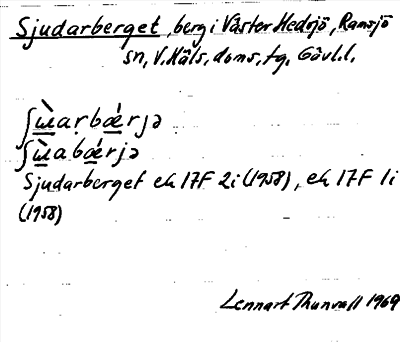 Sjudarberget, berg i Väster Hedsjö, Ramsjö
sn, V. Häls. doms. tg. Gävl. l.
ʃɯ̀arbǽrjə
ʃɯ̀abǽrjə
Sjudarberget ek 17F 2i (1958), ek 17F 1i
(1958)
Lennart Thunvall 1969